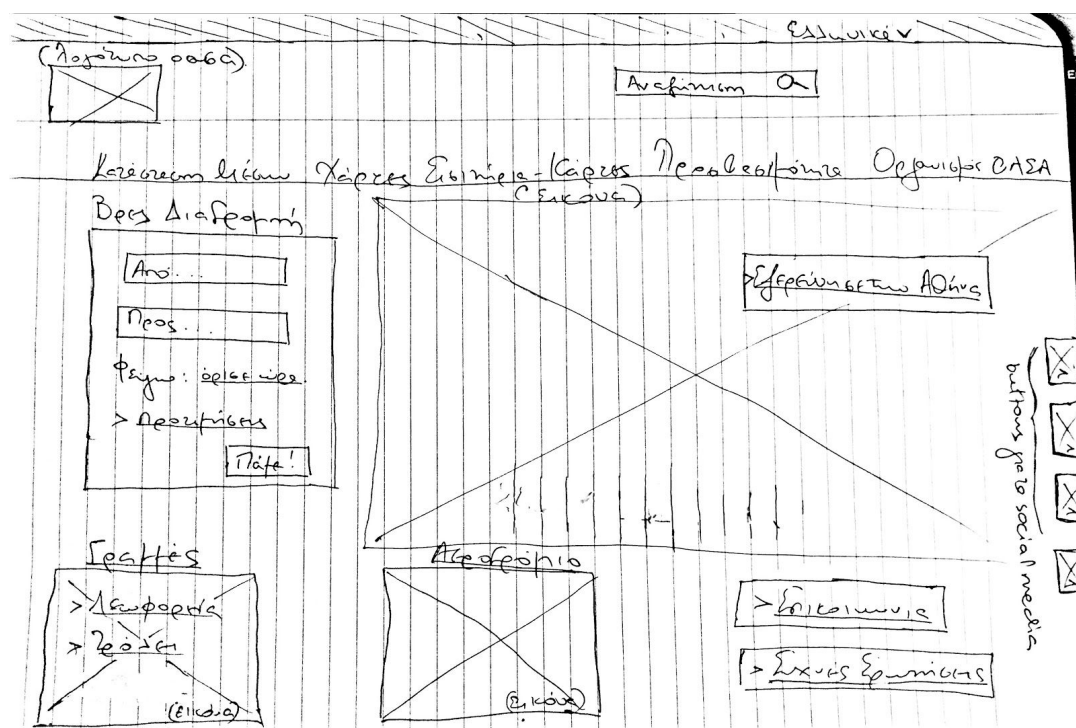 Ελληνικά
(λογότυπο οασα)
Αναζήτηση
Κατάσταση Μέσων Χάρτες Εισιτήρια-Κάρτες Προσβασιμότητα Οργανισμός ΟΑΣΑ
Βρες Διαδρομή
(Εικόνα)
Από...
Προς...
Φεύγω: όρισε ώρα
> Προτιμήσεις
Πάμε!
>Εξερεύνησε την Αθήνα
buttons για τα social media
Γραμμές
> Λεωφορεία
> Τρόλεϊ
(εικόνα)
Αεροδρόμιο
(Εικόνα)
> Επικοινωνία
> Συχνές Ερωτήσεις